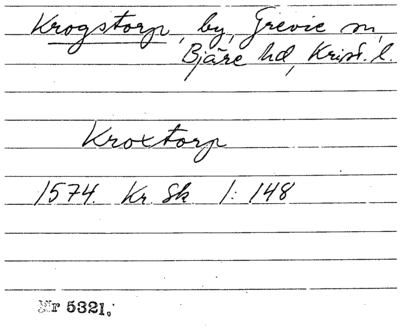 Krogstorp, by, Grevie sn,
Bjäre hd, Krist. l.
Kroxtorp
1574. Kr Sk 1: 148
Nr 5321.